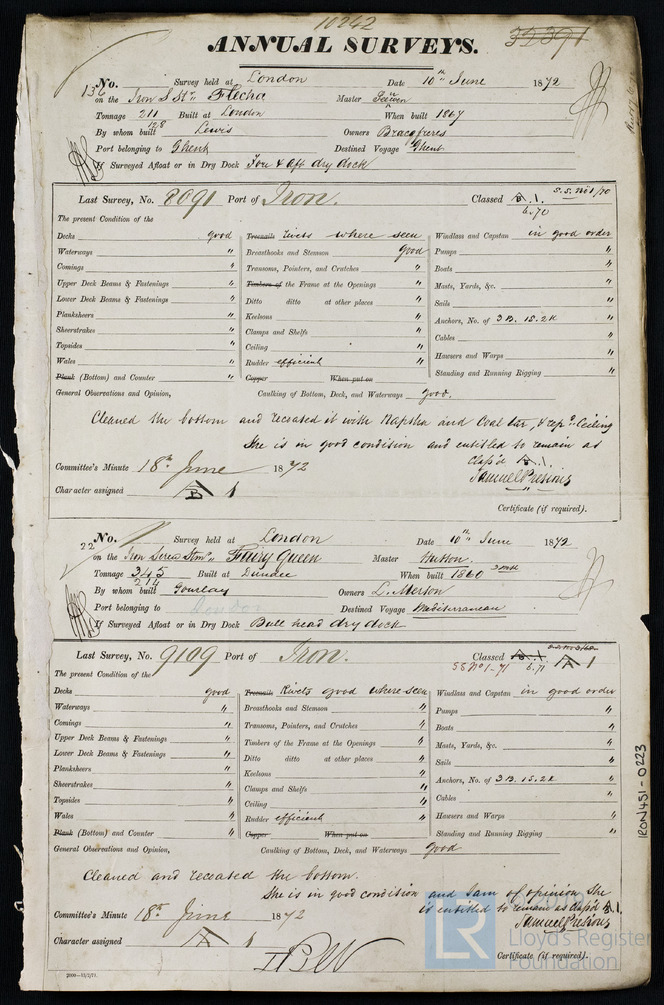 10242
ANNUAL SURVEYS. 32391
13 No. Survey held at London Date 10th June 1872
on the Iron S Str Flecha Master
Tonnage 211 Built at London When built 1867
128
By whom built Lewis Owners
Port belonging to Ghent Destined Voyage Ghent
If Surveyed Afloat or in Dry Dock Fore & Aft dry dock
Last Survey, No. 8091 Port of Iron. Classed A.1. S.S. No1/70
6.70
The present Condition of the
Decks good
Waterways "
Comings "
Upper Deck Beams & Fastenings "
Lower Deck Beams & Fastenings "
Planksheers "
Sheerstrakes "
Topsides "
Wales "
Plank (Bottom) and Counter "
Treenails Rivets where seen
Breasthooks and Stemson good
Transoms, Pointers, and Crutches "
Timbers of the Frame at the Openings "
Ditto ditto at other places "
Keelsons "
Clamps and Shelfs "
Ceiling "
Rudder efficient "
Copper When put on
Windlass and Capstan in good order
Pumps "
Boats "
Masts, Yards, &c. "
Sails "
Anchors, No. of 3B. 1S. 2K "
Cables "
Hawsers and Warps "
Standing and Running Rigging "
General Observations and Opinion, Caulking of Bottom, Deck, and Waterways good.
Cleaned the bottom and recoated it with Naptha and Coal tar, & repd Ceiling
She is in good condition and entitled to remain as
Class'd A.1.
Committee's Minute 18th June 1872
Samuel Presious
Character assigned A 1
B
Certificate (if required).
22 No. Survey held at London Date 10th June 1872
on the Iron Screw Stmr Fairy Queen Master Hutson
Tonnage 345 Built at Dundee When built 1860
211
By whom built Gourlay Owners L. Merson
Port belonging to London Destined Voyage Mediterranean
If Surveyed Afloat or in Dry Dock Bull head dry dock
Last Survey, No. 9109 Port of Iron. Classed A.1. A 1
SS No1-71 6.71
The present Condition of the
Decks good
Waterways "
Comings "
Upper Deck Beams & Fastenings "
Lower Deck Beams & Fastenings "
Planksheers "
Sheerstrakes "
Topsides "
Wales "
Plank (Bottom) and Counter "
Treenails Rivets good where seen
Breasthooks and Stemson "
Transoms, Pointers, and Crutches "
Timbers of the Frame at the Openings "
Ditto ditto at other places "
Keelsons "
Clamps and Shelfs "
Ceiling "
Rudder efficient "
Copper When put on
Windlass and Capstan in good order
Pumps "
Boats "
Masts, Yards, &c. "
Sails "
Anchors, No. of 3B. 1S. 2K "
Cables "
Hawsers and Warps "
Standing and Running Rigging "
General Observations and Opinion, Caulking of Bottom, Deck, and Waterways good
Cleaned and recoated the bottom.
She is in good condition and I am of opinion she
is entitled to remain as Class'd A.1.
Committee's Minute 18th June 1872
Samuel Presious
Character assigned A 1
Certificate (if required).
2000—15/2/71.
IRON451-0223
LR Lloyd's Register
Foundation